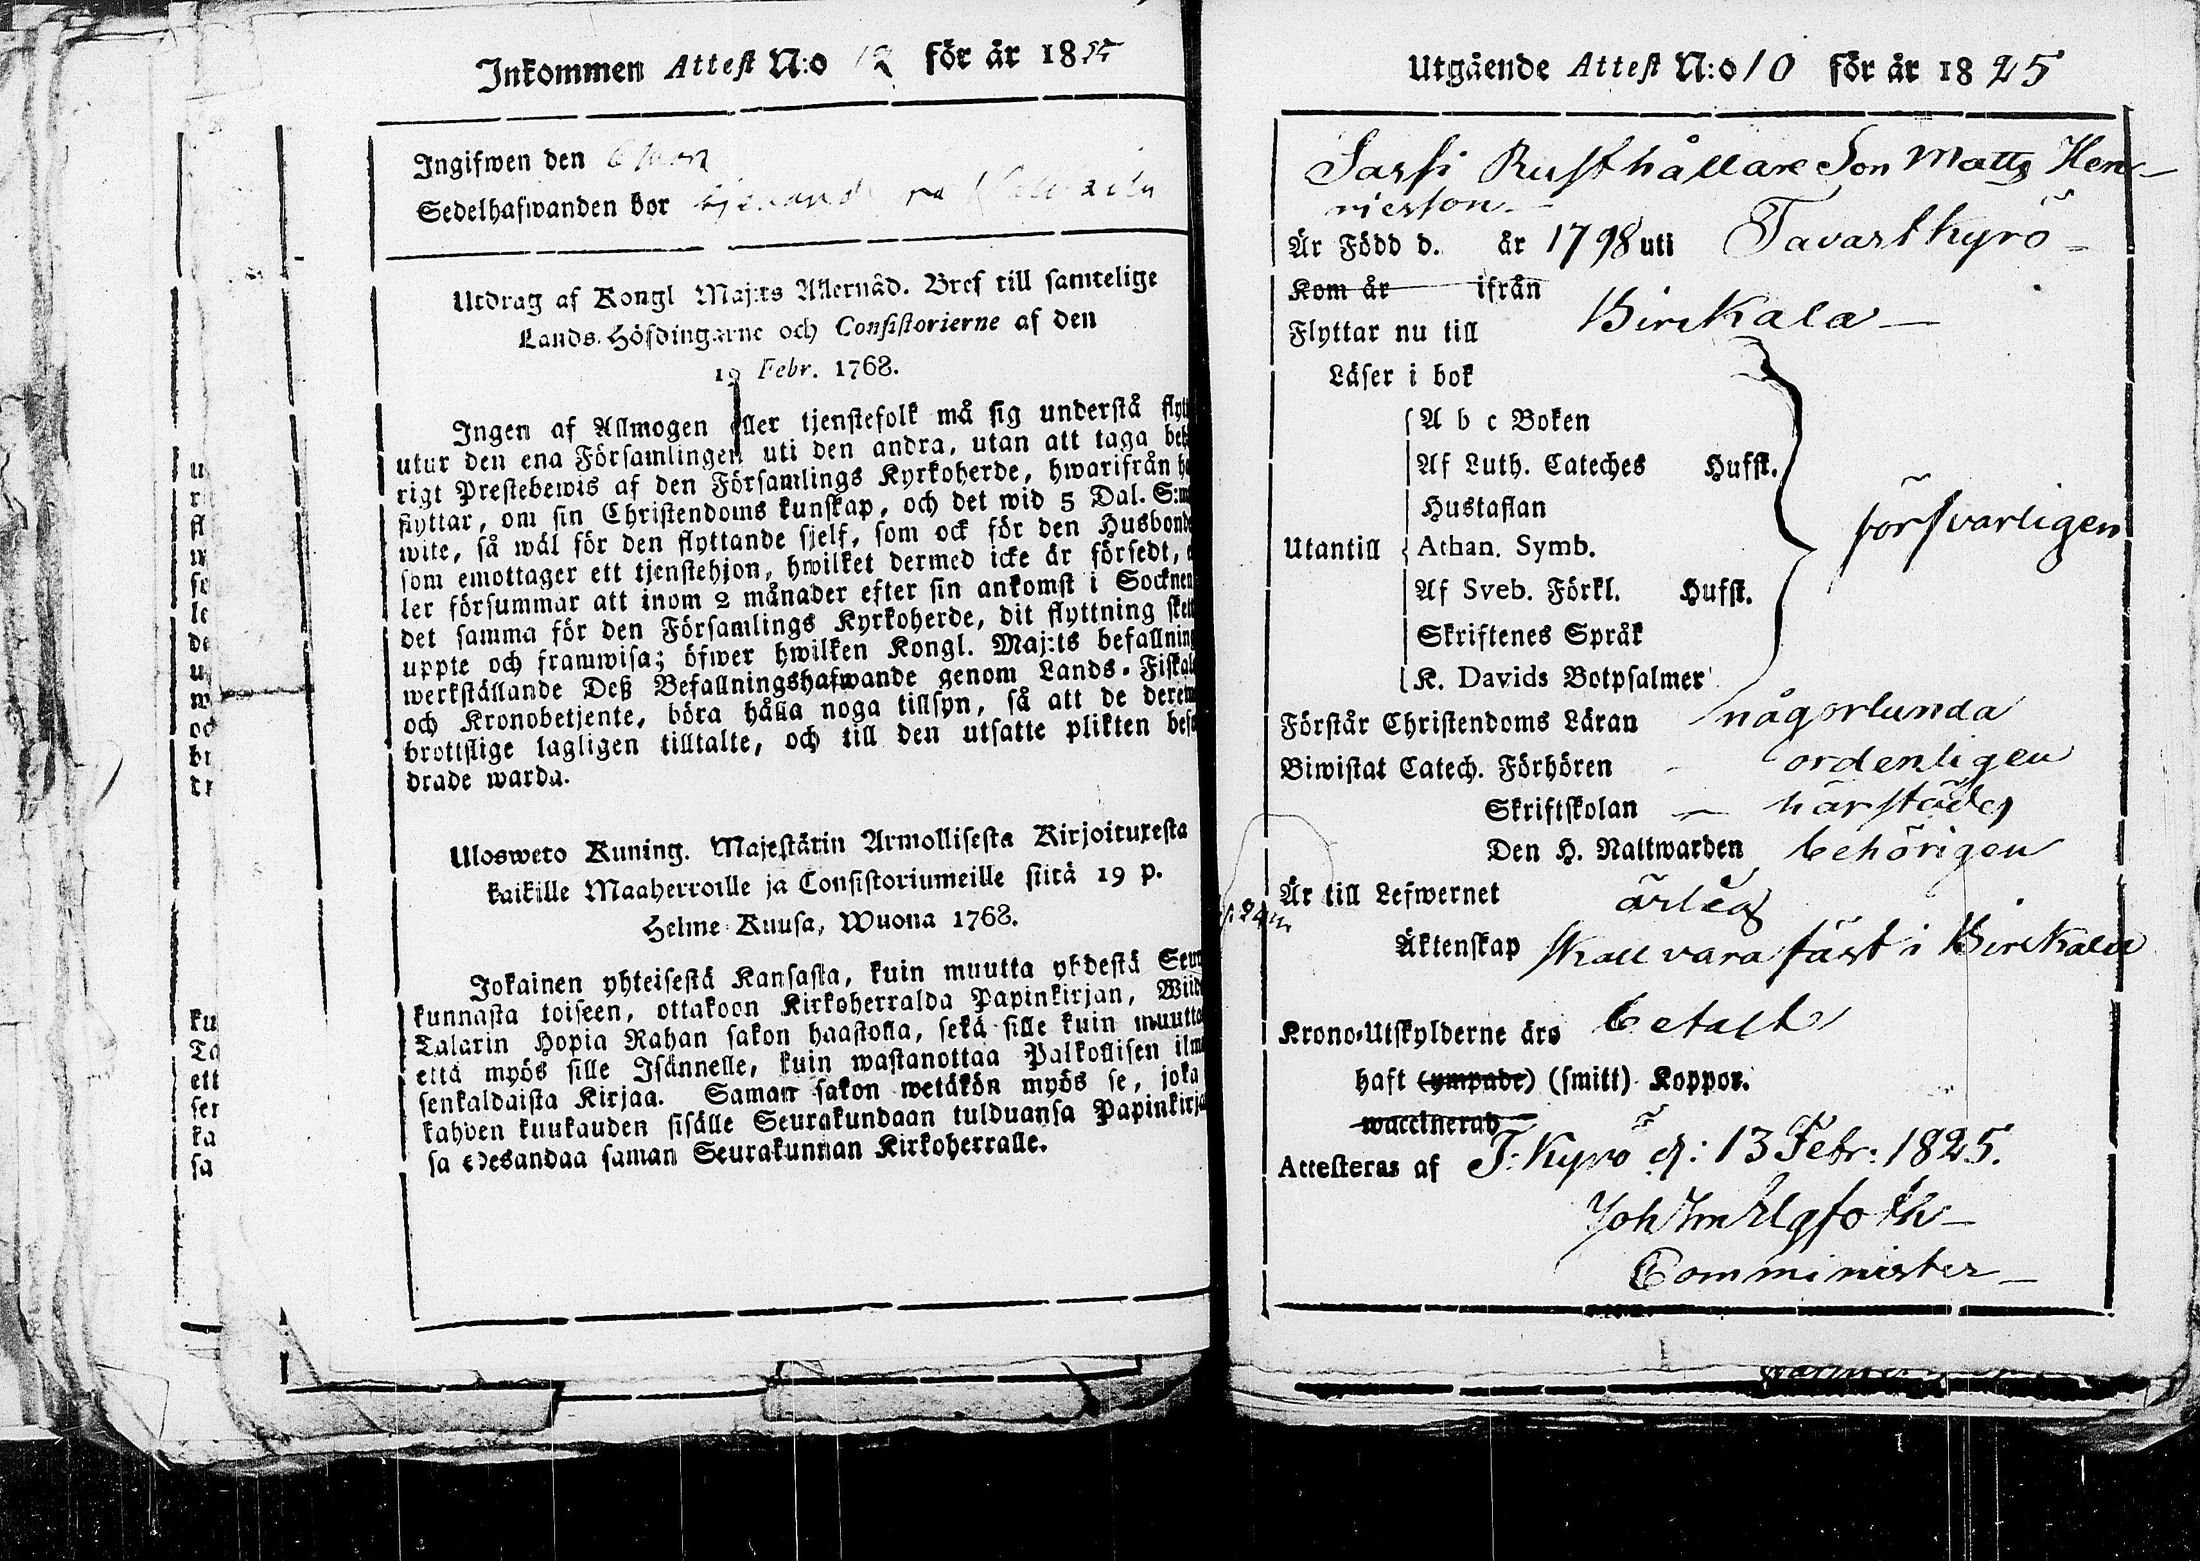 Inkommen Attest N:o 12 för år 18
Ingifwen den 6
Sedelhafwanden bor
Utdrag af Kongl Maj:ts Allernåd. Bref till samtelige
Lands-Höfdingarne och Consistorierne af den
19 Febr. 1768.
Ingen af Allmogen eller tjenstefolk må sig understå flyt
utur den ena Församlingen uti den andra, utan att taga beh
rigt Prestebewis af den Församlings Kyrkoherde, hwarifrån h
flyttar, om sin Christendoms kunskap, och det wid 5 Dal. S:m
wite, så wäl för den flyttande sjelf, som ock för den Husbonde
som emottager ett tjenstehjon, hwilket dermed icke är försedt, e
ler försummar att inom 2 månader efter sin ankomst i Socknen
det samma för den Församlings Kyrkoherde, dit flyttning skett
uppte och framwisa; öfwer hwilken Kongl. Maj:ts befallning
werkställande Deß Befallningshafwande genom Lands-Fiskale
och Kronobetjente, böra hålla noga tillsyn, så att de derem
brottslige lagligen tilltalte, och till den utsatte plikten befo
drade warda.
Ulosweto Kuning. Majestärin Armollisesta Kirjoituxesta
kaikille Maaherroille ja Consistoriumeille siitä 19 p.
Helme-Kuusa, Wuona 1768.
Jokainen yhteisestä Kansasta, kuin muutta yhdestä Seur
kunnasta toiseen, ottakoon Kirkoherralda Papinkirjan, Wiide
Talarin Hopia Rahan sakon haastolla, sekä sille kuin muutta
että myös sille Isännelle, kuin wastanottaa Palkollisen ilm
senkaldaista Kirjaa. Saman sakon wetäkön myös se, joka
kahden kuukauden sisälle Seurakundaan tulduansa Papinkirja
sa edesandaa saman Seurakunnan Kirkoherralle.
Utgående Attest N:o 10 för år 1825
Sassi Rusthållare Son Matts Hen-
ricsson
Är Född d. år 1798 uti Tavastkyrö
Kom år ifrån
Flyttar nu till Birckala
Läser i bok
A b c Boken
Af Luth. Cateches Hufst.
Hustaflan
Utantill Athan. Symb. försvarligen
Af Sveb. Förkl. Hufst.
Skriftenes Språk
K. Davids Botpsalmer
Förstår Christendoms Läran någorlunda
Biwistat Catech. Förhören ordenligen
Skriftskolan härstädes
Den H. Nattwarden behörigen
Är till Lefwernet ärlig
Äktenskap skall vara fäst i Birckala
Krono-Utskylderne äro betalt
haft (ympade) (smitt) Koppor.
waccinerad
Attesteras af T: Kyrö d: 13 Febr: 1825.
Joh Im Elgfoth
Comminister